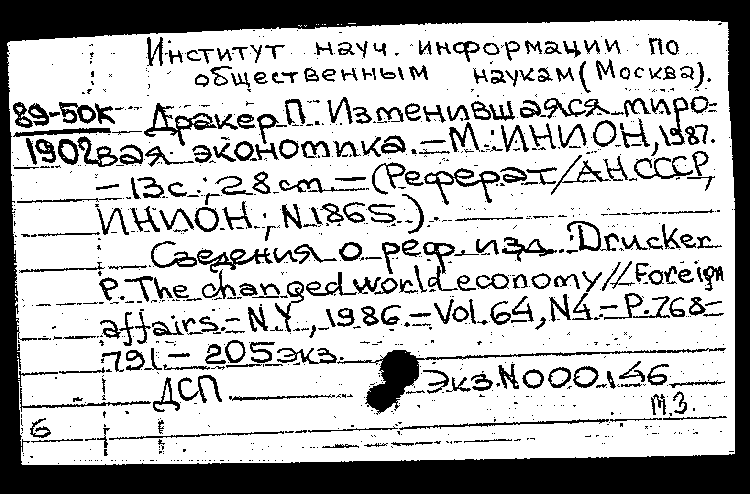 Институт науч. информации по
общественным наукам (Москва).
89-50К Дракер П. Изменившаяся миро-
1902 вая экономика. – М.: ИНИОН, 1987.
– 13с.; 28cm. – (Реферат/АН СССР,
ИНИОН; N.1865.).
Сведения о реф. изд.: Drucker
P. The changed world economy // Foreign
affairs. – N.Y., 1986. – Vol. 64, N4. – P. 768-
791 – 205 экз.
ДСП Экз. N 000146
М.З.
6